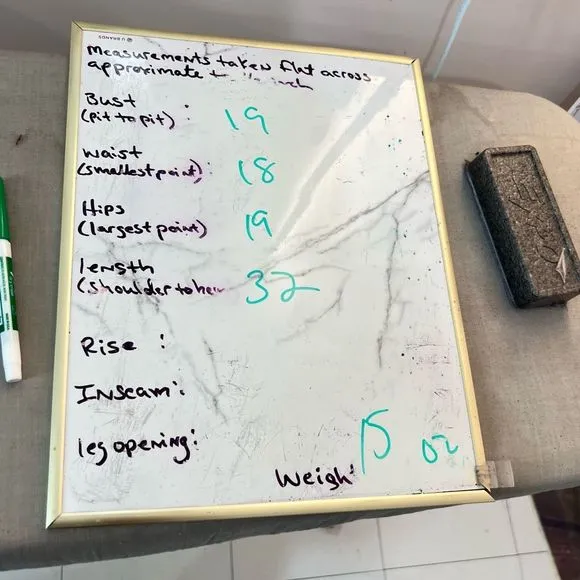 U BRANDS
measurements taken flat across
approximate to inch
Bust :
(pit to pit) 19
waist
(smallest point): 18
Hips
(largest point) 19
length
(shoulder to 32
Rise :
Inseam:
leg opening:
Weigh 15 oz